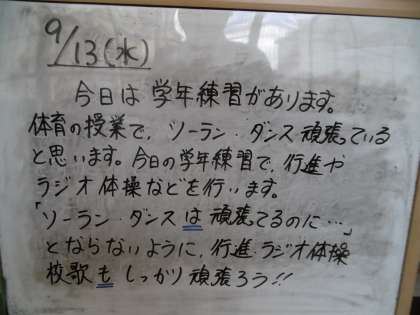 9/13(水)
今日は学年練習があります。
体育の授業で、ソーラン・ダンス頑張っている
と思います。今日の学年練習で、行進や
ラジオ体操などを行います。
「ソーラン・ダンスは頑張てるのに…」
とならないように、行進・ラジオ体操
校歌もしっかり頑張ろう!!